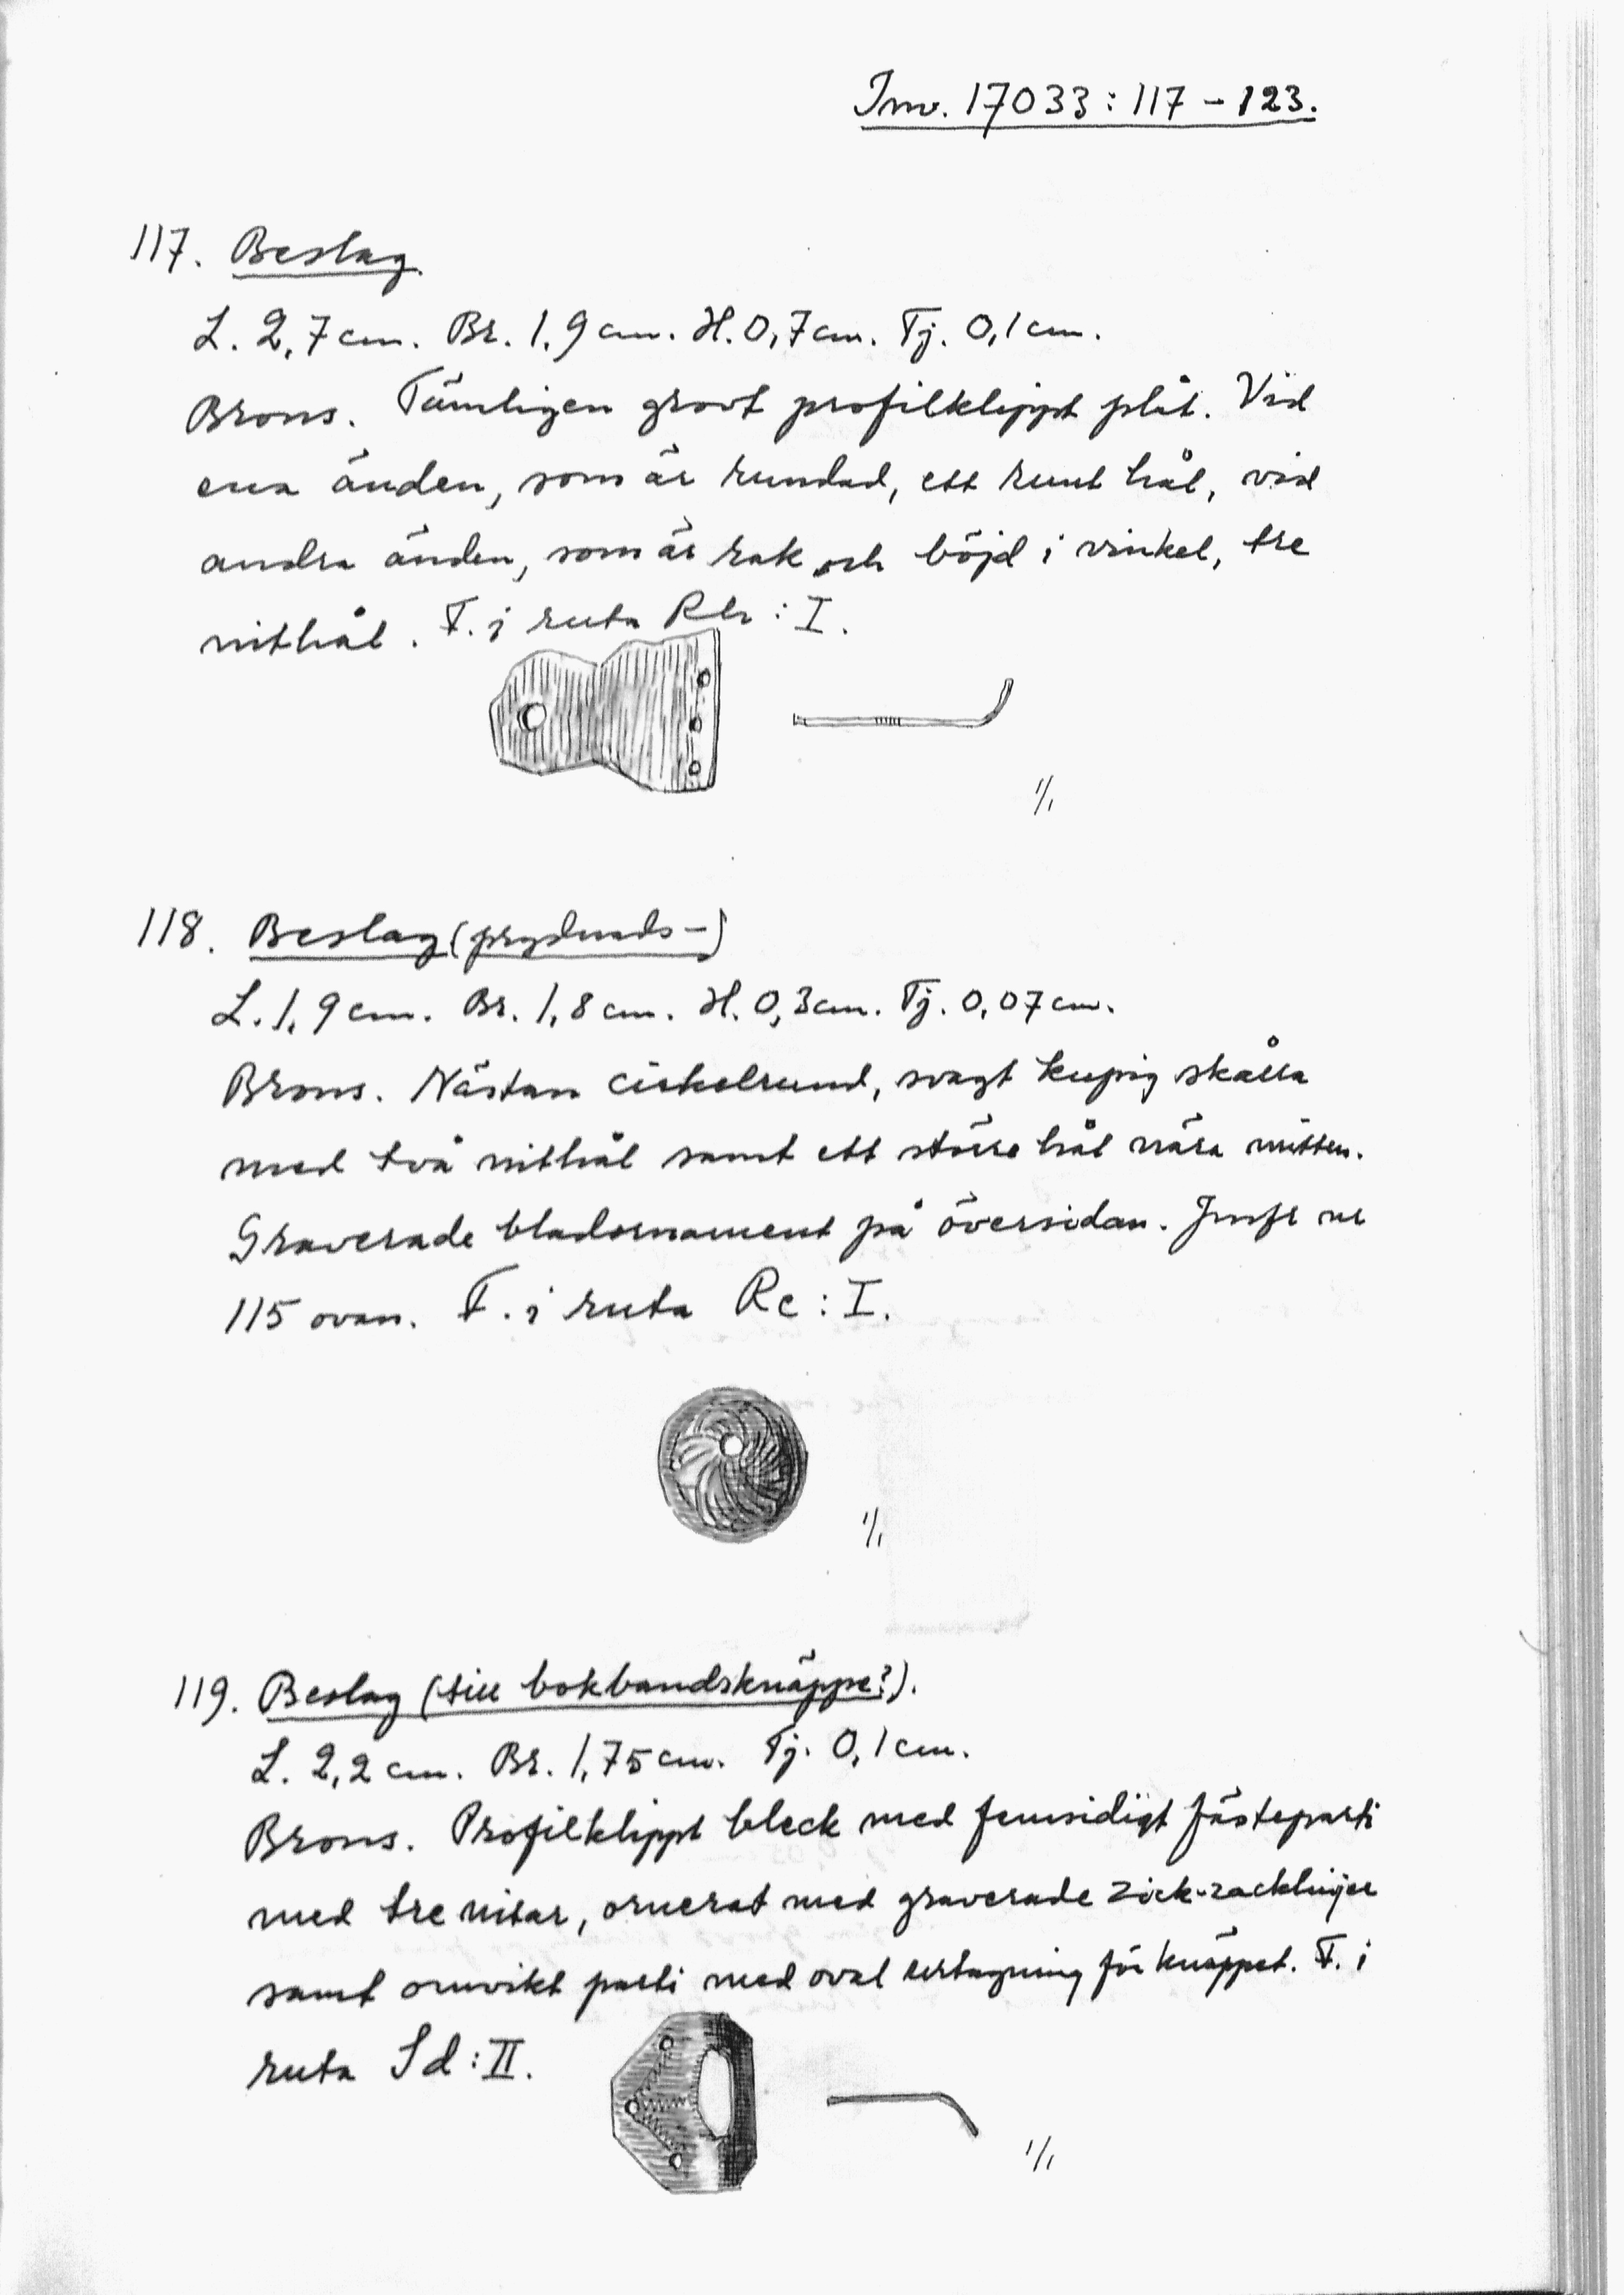 Inv. 17033:117-123.
117. Beslag.
L. 2,7 cm. Br. 1,9 cm. H. 0,7 cm. Tj. 0,1 cm.
Brons. Tämligen grovt profilklippt plåt. Vid
ena änden, som är rundad, ett runt hål, vid
andra änden, som är rak och böjd i vinkel, tre
nithål. F. i ruta Rb:I.
1/1
118. Beslag (prydnads-)
L. 1,9 cm. Br. 1,8 cm. H. 0,3 cm. Tj. 0,07 cm.
Brons. Nästan cirkelrund, svagt kupig skålla
med två nithål samt ett större hål nära mitten.
Graverade bladornament på översidan. Jmfr nr
115 ovan. F. i ruta Rc:I.
1/1
119. Beslag (till bokbandsknäppe?).
L. 2,2 cm. Br. 1,75 cm. Tj. 0,1 cm.
Brons. Profilklippt bleck med femsidigt fästeparti
med tre nitar, ornerat med graverade zick-zacklinjer
samt omvikt parti med oval urtagning för knäppet. F. i
ruta Sd:II.
1/1